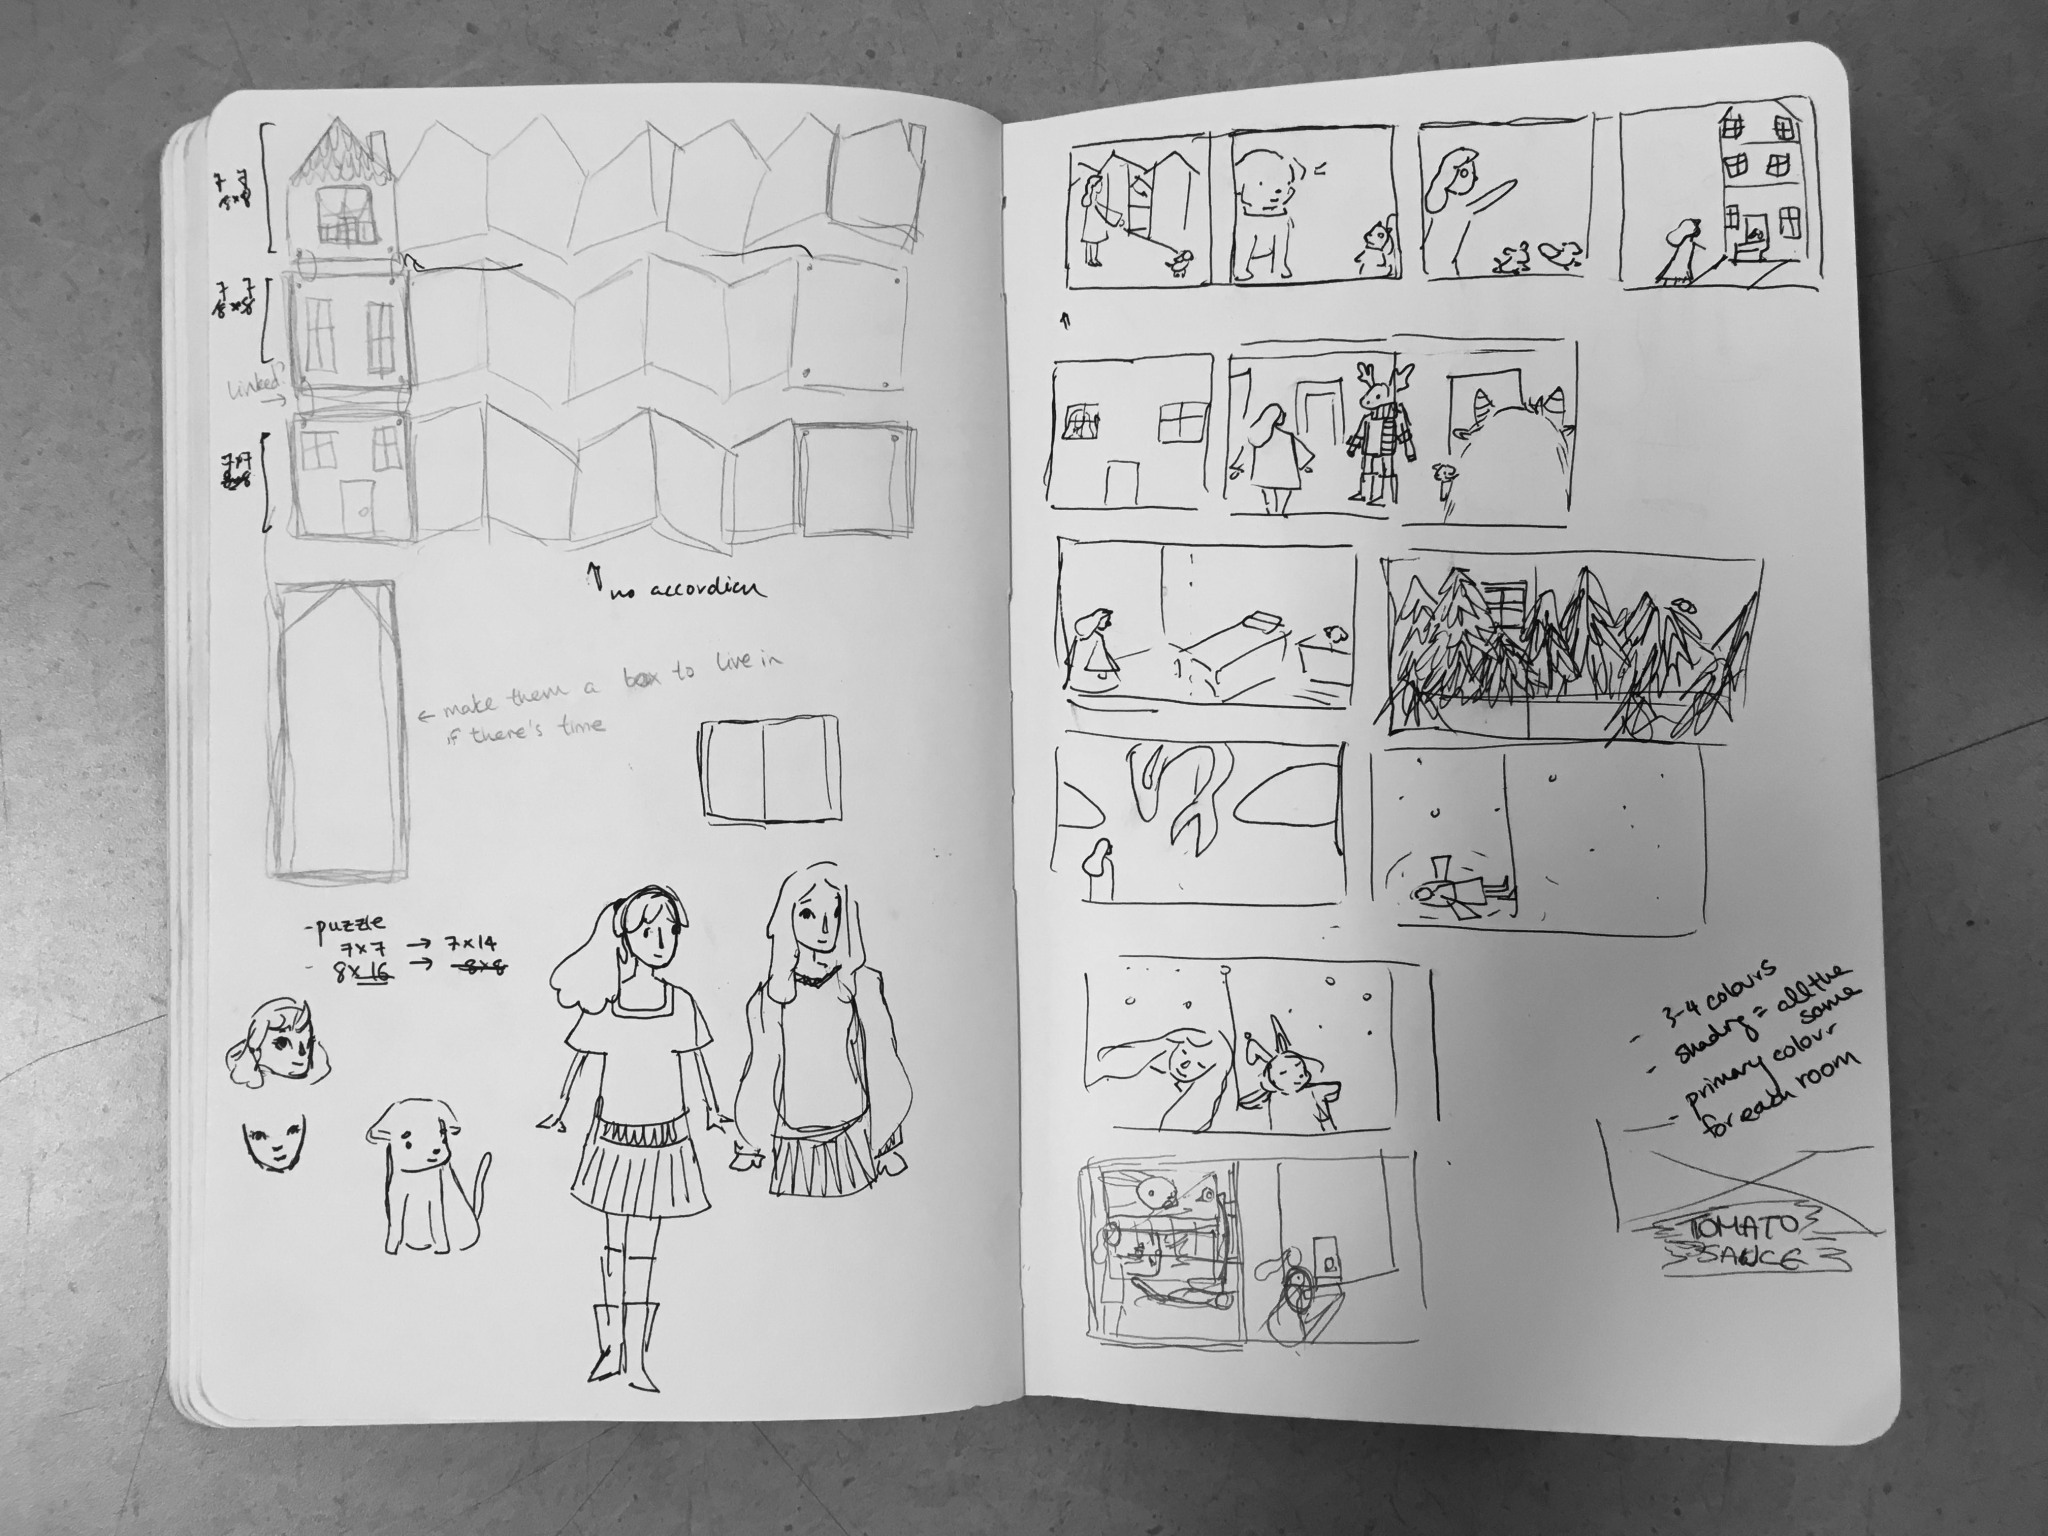 7 7
8x8
7 7
8x8
Linked?
7x7
8x8
no accordian
← make them a box to live in
if there's time
- puzzle
7x7 → 7x14
- 8x16 → 8x8
- 3-4 colours
- shading = all the
same
- primary colour
for each room
TOMATO
SAUCE